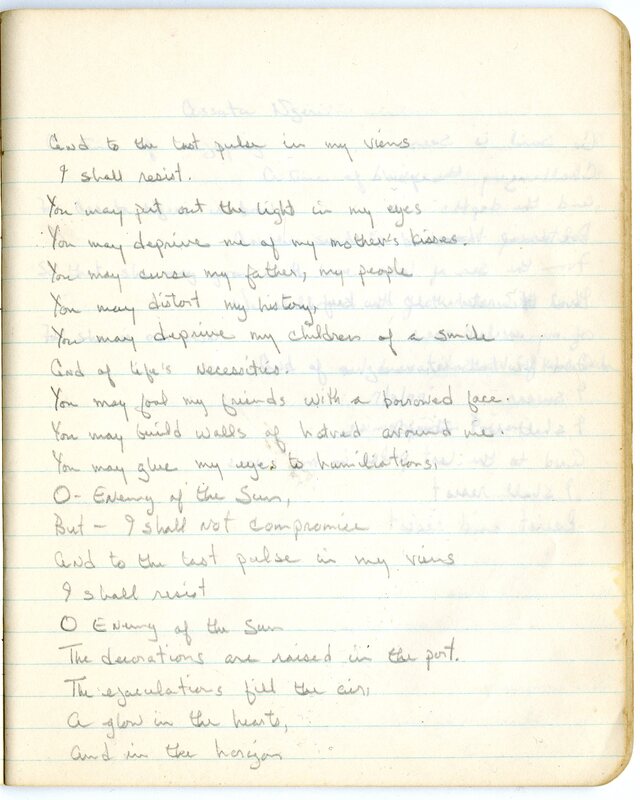 And to the last pulse in my viens
I shall resist.
You may put out the light in my eyes
You may deprive me of my mother's kisses.
You may curse my father, my people
You may distort my history,
You may deprive my children of a smile
And of life's necessities.
You may fool my friends with a borrowed face.
You may build walls of hatred around me.
You may glue my eyes to humiliations,
O- Enemy of the Sun,
But - I shall not compromise
And to the last pulse in my viens
I shall resist
O Enemy of the Sun
The decorations are raised in the port.
The ejaculations fill the air,
A glow in the hearts,
And in the horizon